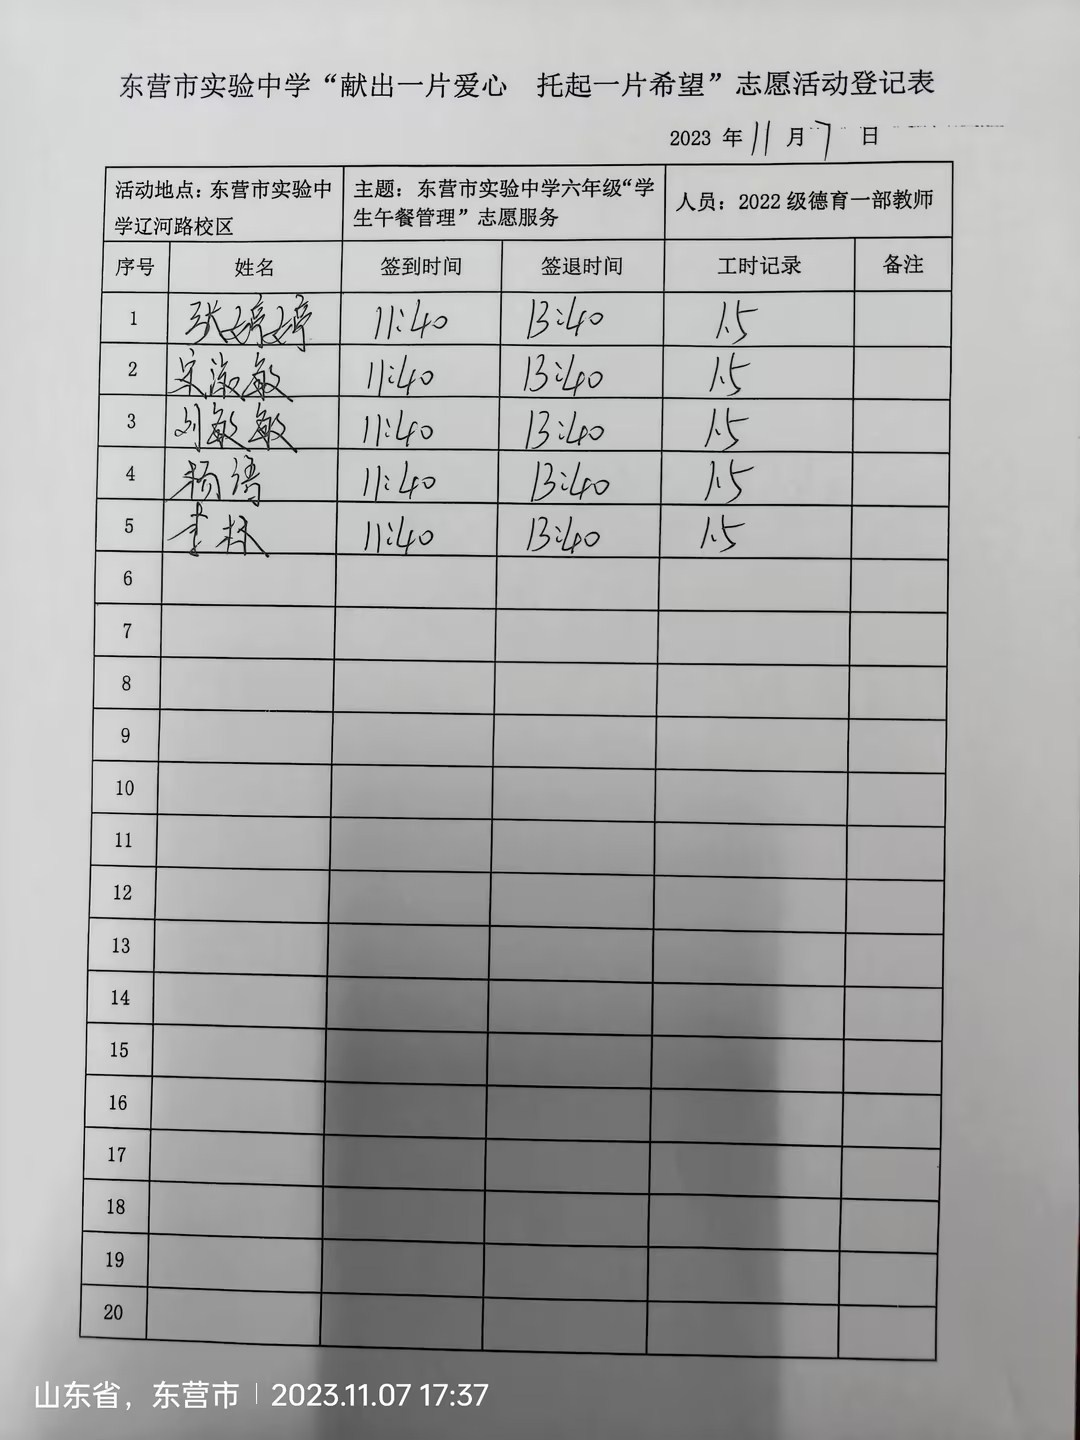 东营市实验中学“献出一片爱心 托起一片希望”志愿活动登记表
2023 年 11 月 7 日
活动地点：东营市实验中学辽河路校区 主题：东营市实验中学六年级“学生午餐管理”志愿服务 人员：2022 级德育一部教师
序号 姓名 签到时间 签退时间 工时记录 备注
1 张婷婷 11:40 13:40 1.5
2 宋淑敏 11:40 13:40 1.5
3 刘敏敏 11:40 13:40 1.5
4 杨 11:40 13:40 1.5
5 11:40 13:40 1.5
6
7
8
9
10
11
12
13
14
15
16
17
18
19
20
山东省，东营市 | 2023.11.07 17:37